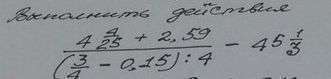 Выполнить действия
4 4/25 + 2,59
(3/4 − 0,15) : 4 − 45 1/3